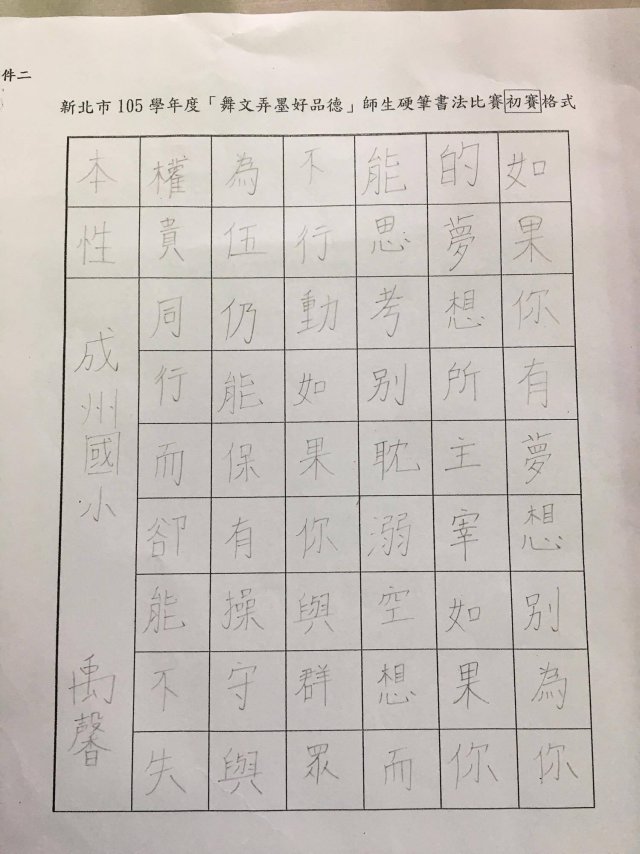 件二
新北市105學年度「舞文弄墨好品德」師生硬筆書法比賽初賽格式
如果你有夢想別為你
的夢想所主宰如果你
能思考別耽溺空想而
不行動如果你與群眾
為伍仍能保有操守與
權貴同行而卻能不失
本性
成州國小
禹馨